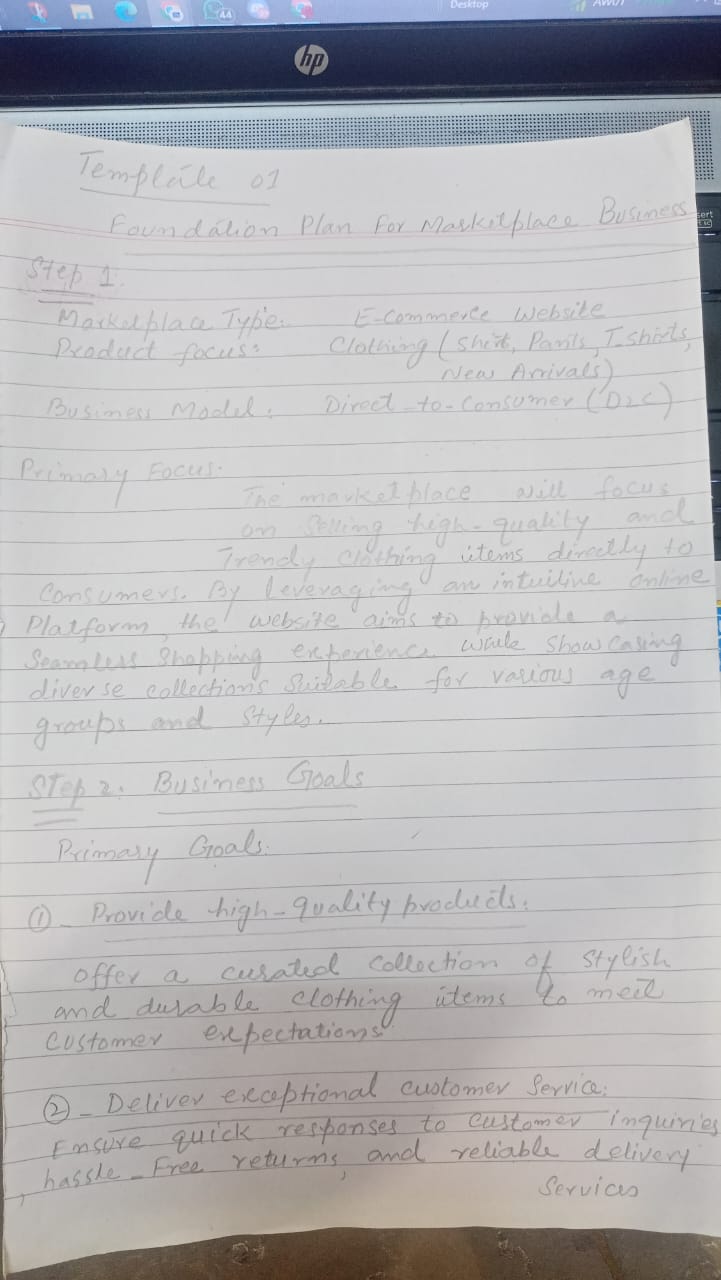 Desktop
44
hp
sert
Template 01
Foundation Plan For Marketplace Business
Step 1.
Marketplace Type: E-Commerce Website
Product focus: Clothing (Shirt, Pants, T-shirts,
New Arrivals)
Business Model: Direct-to-Consumer (D2C)
Primary Focus:
The marketplace will focus
on Selling high-quality and
Trendy Clothing items directly to
Consumers. By Leveraging an intuitive online
Platform, the website aims to provide a
Seamless Shopping experience while Showcasing
diverse collections Suitable for various age
groups and Styles.
Step 2. Business Goals
Primary Goals:
① - Provide high-quality products:
Offer a curated Collection of Stylish
and durable Clothing items to meet
Customer expectations
② - Deliver exceptional customer Service:
Ensure quick responses to Customer inquiries,
hassle-Free returns, and reliable delivery
Services